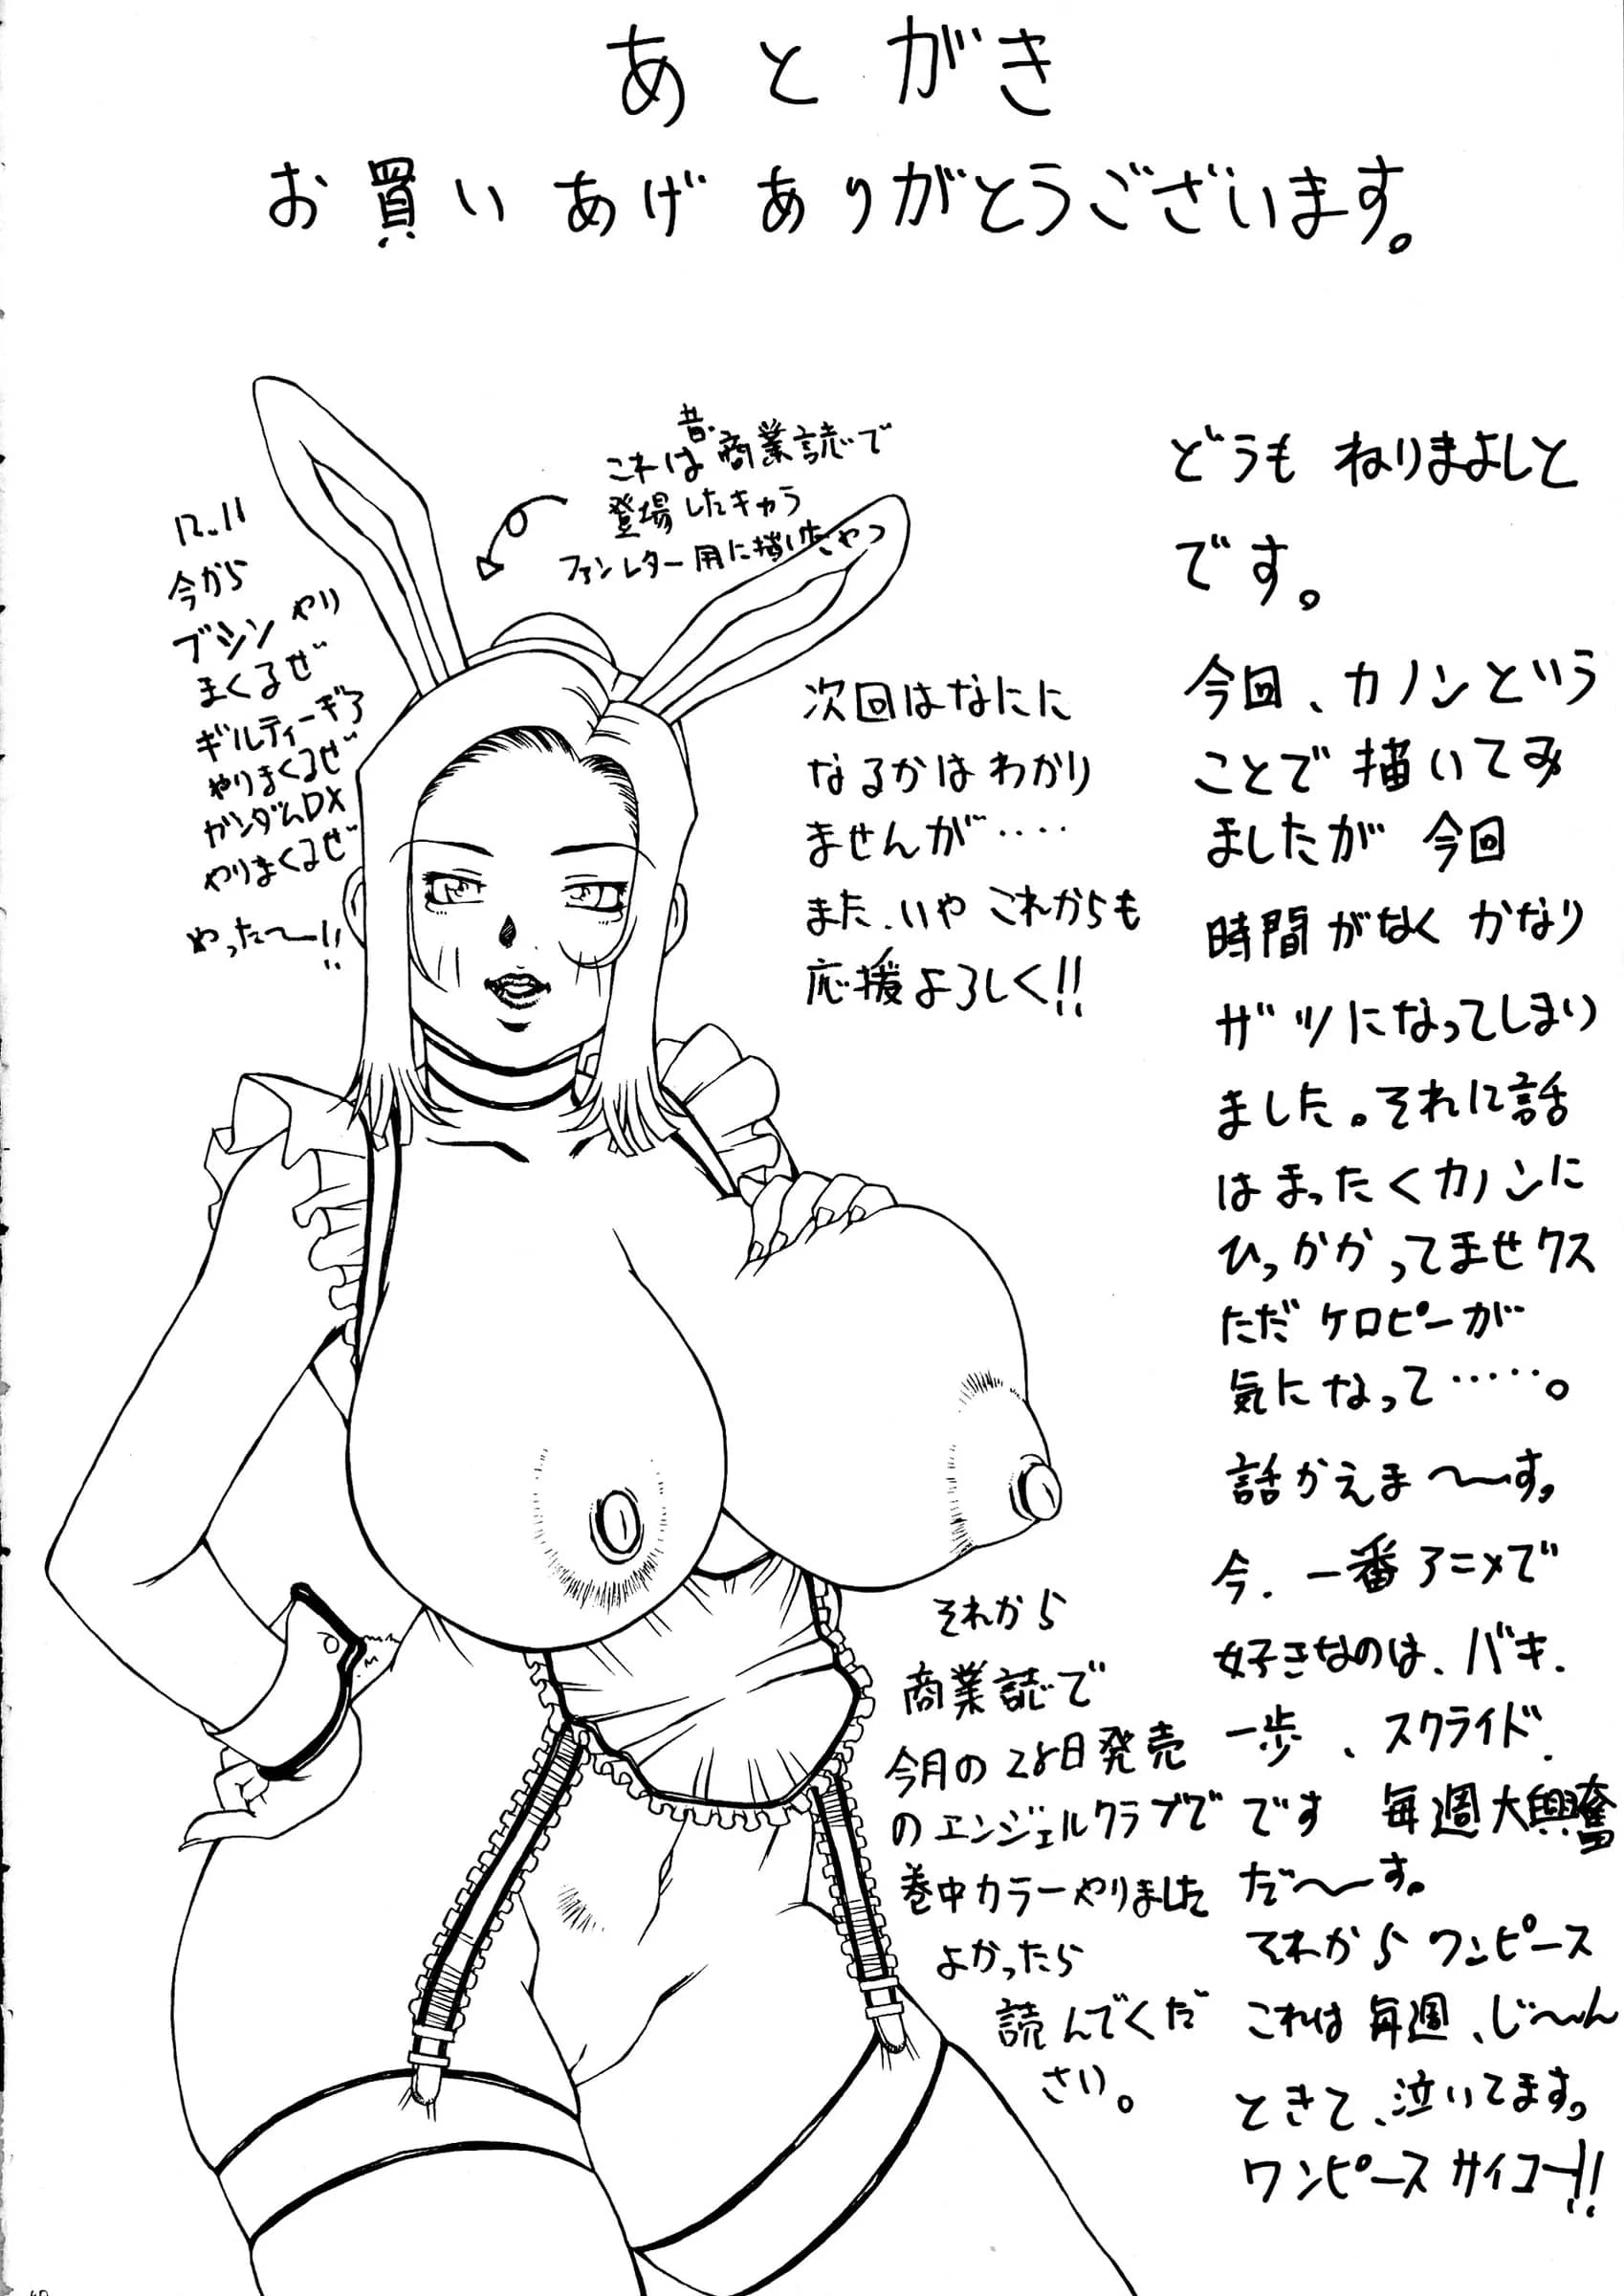 あとがき
お買いあげありがとうございます。
どうも ねりまよしと
です。
今回、カノンという
ことで描いてみ
ましたが 今回
時間がなく かなり
ザツになってしまい
ました。それに話
はまったくカノンに
ひっかかってませクス
ただケロピーが
気になって……。
話かえま〜〜す。
今、一番アニメで
好きなのは、バキ、
一歩、スクライド、
です 毎週大興奮
だ〜〜す。
それから ワンピース
これは毎週、じ〜〜ん
ときて、泣いてます。
ワンピース サイコー!!
昔
これは 商業誌で
登場したキャラ
ファンレター用に描いたやつ
次回はなにに
なるかはわかり
ませんが‥‥
また、いや これからも
応援よろしく!!
12.11
今から
ブシン やり
まくるぜ
ギルティーギア
やりまくるぜ
ガンダムDX
やりまくるぜ
やった〜!!
それから
商業誌で
今月の28日発売
のエンジェルクラブで
巻中カラーやりました
よかったら
読んでくだ
さい。